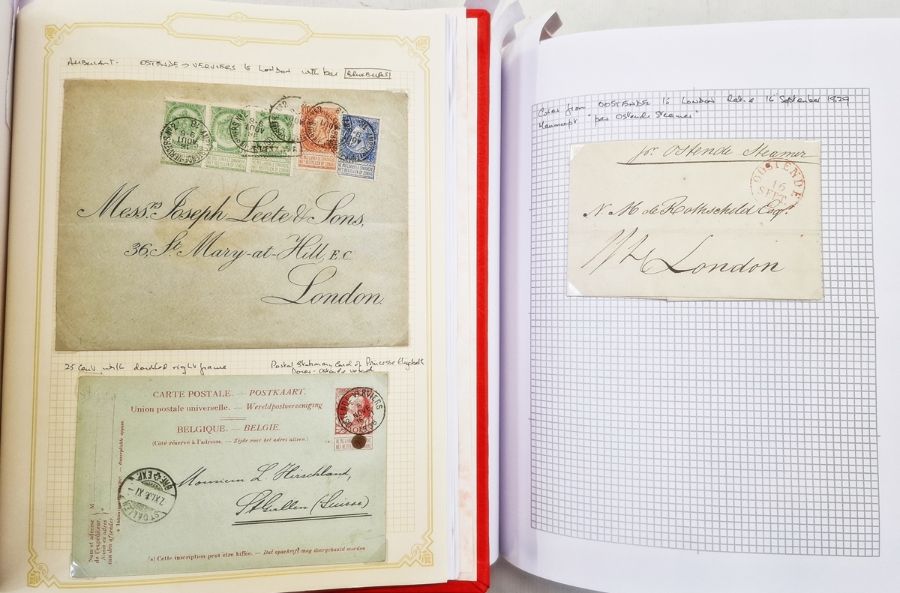 AMBULANT. OSTENDE -> VERVIERS to London with
Mess.rs Joseph Leete & Sons,
36, St. Mary-at-Hill, E.C.
London.
25 cent with doubled right frame
Postal Stationary Card of Princesse Elisabeth
Dover-Ostende
CARTE POSTALE. — POSTKAART.
Union postale universelle. — Wereldpostvereeniging
BELGIQUE. — BELGIE
(Côté réservé à l'adresse. — Zijde voor het adres alleen.)
Monsieur L. Hirschland,
St Gallen (Suisse)
ST. GALLEN
(a) Cette inscription peut être biffée. — Dit opschrift mag doorgehaald worden
Cover from OOSTENDE to London date 16 September 1829
Manuscript "per Ostende Steamer"
pr. Ostende Steamer
OOSTENDE
16
SEP
N. M. de Rothschild Esq.
London